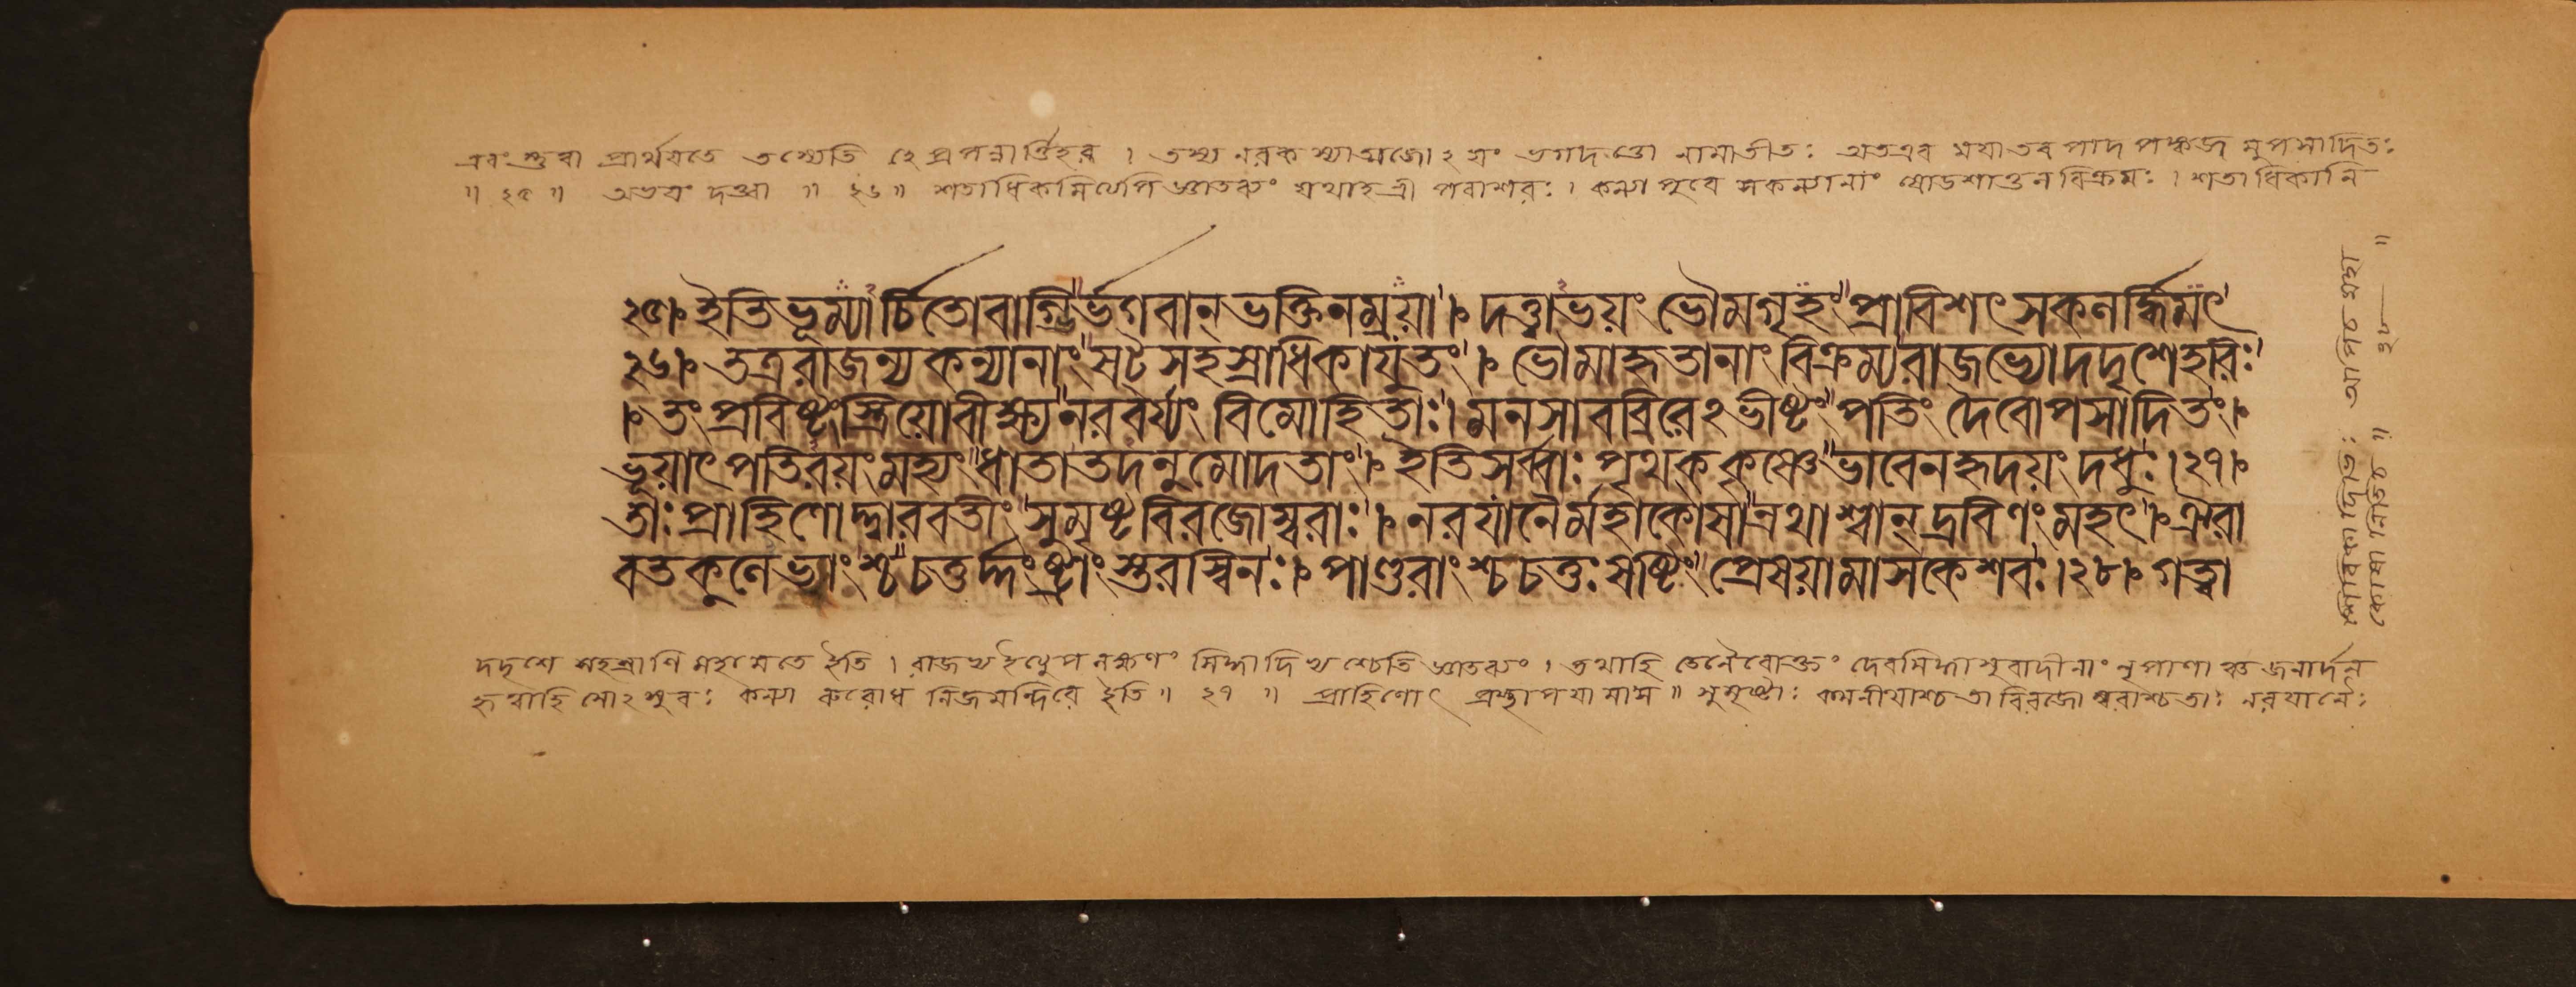 এবং শ্রুত্বা প্রার্থয়তে তস্যেতি হে প্রপন্নার্ত্তিহর । তস্য নরকস্যাত্মজোঽয়ং ভগদত্তো নামাভীতঃ অতএব ময়া তব পাদপঙ্কজমুপসাদিতঃ
॥ ২৫ ॥ অভয়ং দত্ত্বা ॥ ২৬ ॥ শতাধিকমিত্যেপি জ্ঞাতব্যং যথাহ শ্রীপরাশরঃ । কন্যাপুরে সকন্যানাং ষোডশাতুলবিক্রমঃ । শতাধিকানি
২৫। ইতিভূম্যার্চিতোবাগ্ভির্ভগবান্ ভক্তিনম্রয়া । দত্ত্বাভয়ং ভৌমগৃহং প্রাবিশৎ সকলর্দ্ধিমৎ
২৬। তত্ররাজন্যকন্যানাং ষট্সহস্রাধিকাযুতং । ভৌমাহৃতানাং বিক্রম্যরাজভ্যোদদৃশেহরিঃ
। তং প্রবিষ্টংস্ত্রিয়োবীক্ষ্যনরবর্য্যং বিমোহিতাঃ। মনসাবব্রিরেঽভীষ্টং পতিং দৈবোপসাদিতং।
ভূয়াৎ পতিরয়ংমহ্যং ধাতাতদনুমোদতাং। ইতিসর্ব্বাঃ পৃথককৃষ্ণেভাবেনহৃদয়ং দধুঃ।২৭।
তাঃ প্রাহিণোদ্দ্বারবতীং সুমৃষ্টবিরজোম্বরাঃ। নরযানৈর্মহাকোষান্রথাশ্বান্ দ্রবিণং মহৎ। ঐরা
বতকুলেভ্যাংশ্চচতুর্দ্দংষ্ট্রাংস্তরস্বিনঃ। পাণ্ডুরাংশ্চচতুঃষষ্টিং প্রেষয়ামাসকেশবঃ।২৮। গত্বা
দদৃশে সহস্রাণি মহামতে ইতি । রাজন্যইত্যুপলক্ষণং সিদ্ধাদিভ্যশ্চেতি জ্ঞাতব্যং । তথাহি তেনৈবোক্তং দেবসিদ্ধাসুরাদীনাং নৃপাণাঞ্চ জনার্দন
হৃত্বাহি সোঽসুরঃ কন্যা রুরোধ নিজমন্দিরে ইতি ॥ ২৭ ॥ প্রাহিণোৎ প্রস্থাপয়ামাস ॥ সুমৃষ্টাঃ কমনীয়াশ্চতা বিরজোম্বরাশ্চতাঃ নরযানৈঃ